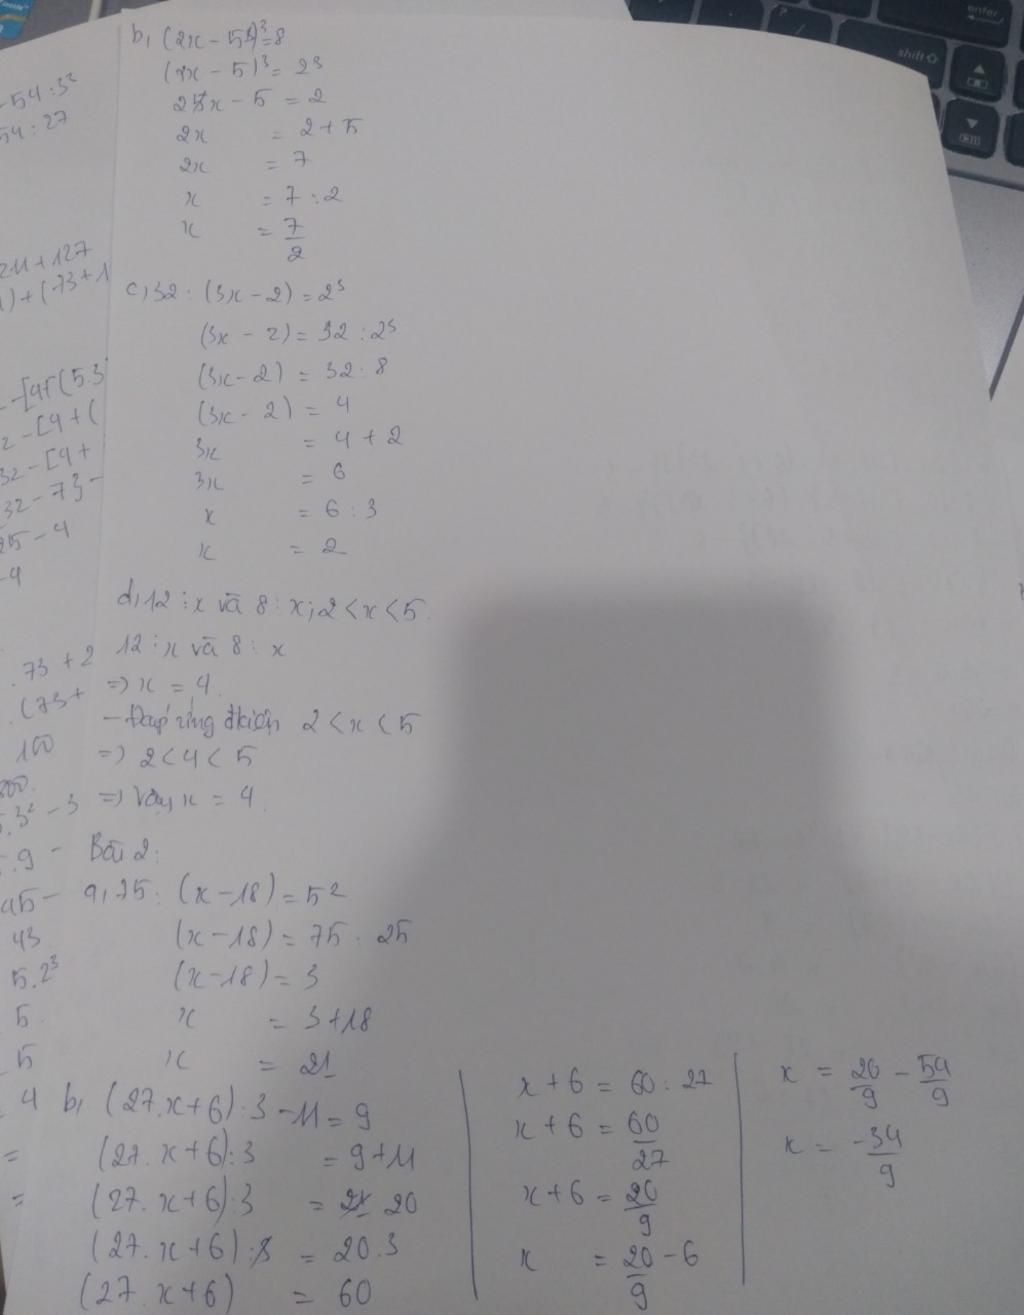 -54:3²
54:27
211+127
1)+(73+1
-[4+(5.3
2-[4+(
32-[4+
32-7}-
25-4
-4
.73+2
.(73+
100
800.
5.3²-3
5.9-
45-
43
5.2³
5
5
4
=
=
b, (2x-5)³=8
(2x-5)³=2³
2x-5=2
2x=2+5
2x=7
x=7:2
x=7/2
c, 32:(3x-2)=2³
(3x-2)=32:2³
(3x-2)=32:8
(3x-2)=4
3x=4+2
3x=6
x=6:3
x=2
d, 12⋮x và 8⋮x; 2<x<5.
12⋮x và 8⋮x
=> x=4.
- Đáp ứng đkiện 2<x<5
=> 2<4<5
=> Vậy x=4.
Bài 2:
a, 75:(x-18)=5²
(x-18)=75:25
(x-18)=3
x=3+18
x=21
b, (27.x+6):3-11=9
(27.x+6):3=9+11
(27.x+6):3=20
(27.x+6)=20.3
(27.x+6)=60
x+6=60:27
x+6=60/27
x+6=20/9
x=20/9-6
x=20/9-54/9
x=-34/9
enter
shift